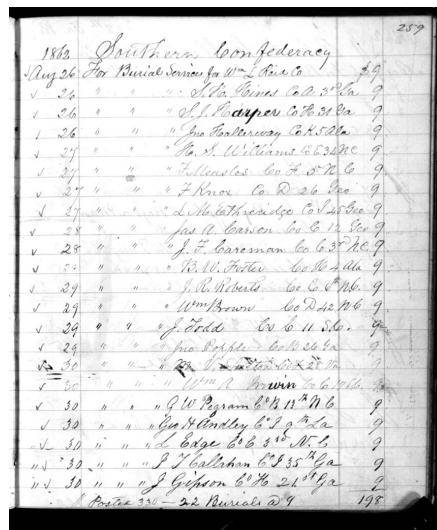 259
1862 Southern Confederacy
Aug 26 For Burial Services for Wm L Reid Co $9
" 26 " " " S. H. Hines Co A. 3rd Ga 9
" 26 " " " S. J. Harper Co H. 31 Ga 9
26 " " " Jno Hollerway Co K 5 Ala 9
27 " " " H. S. Williams Co E 34 NC 9
27 " " " F. Measles Co H. 5 N.C 9
27 " " " F Knox Co D 26 Geo 9
27 " " " L. M. Ethreridge Co I 45 Geo 9
28 " " " Jas A. Carson Co C 12 Geo 9
28 " " " J. F. Careman Co C 3rd NC 9
" " " B. W. Foster Co H 4 Ala 9
29 " " " J. R. Roberts Co C N.C. 9
29 " " " Wm Brown Co D 42 N C 9
29 " " " J. Todd Co C 11 S.C. 9
29 " " " Jno Popple Co K 26 Ga 9
30 " " "
30 " " " Wm A. Co C
30 " " " G W Pegram Co B 13th N C 9
30 " " " Geo H Andley Co I 9th La 9
30 " " " L Edge Co E 3rd N. C 9
30 " " " J T Callahan Co I 35th Ga 9
30 " " " J Gipson Co H 21st Ga 9
Posted 330 - 22 Burials @ 9 198